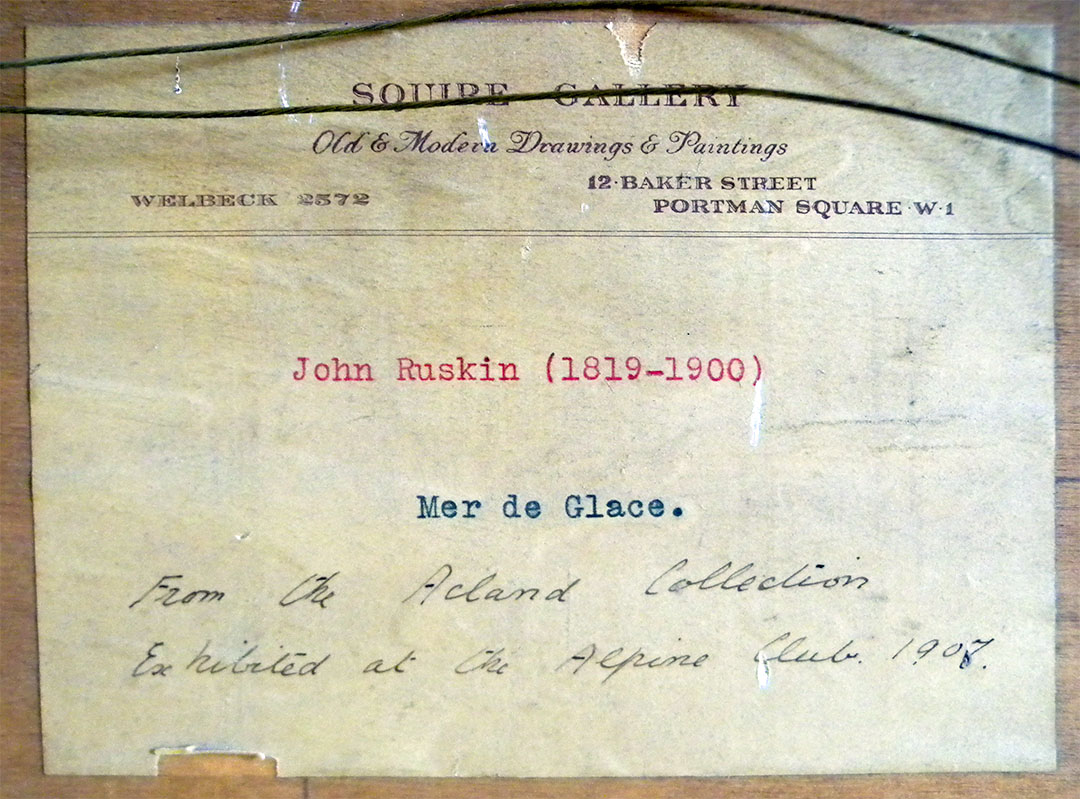 SQUIRE GALLERY
Old & Modern Drawings & Paintings
WELBECK 2572
12·BAKER STREET
PORTMAN SQUARE·W·1
John Ruskin (1819-1900)
Mer de Glace.
From the Acland Collection
Exhibited at the Alpine Club. 1907.